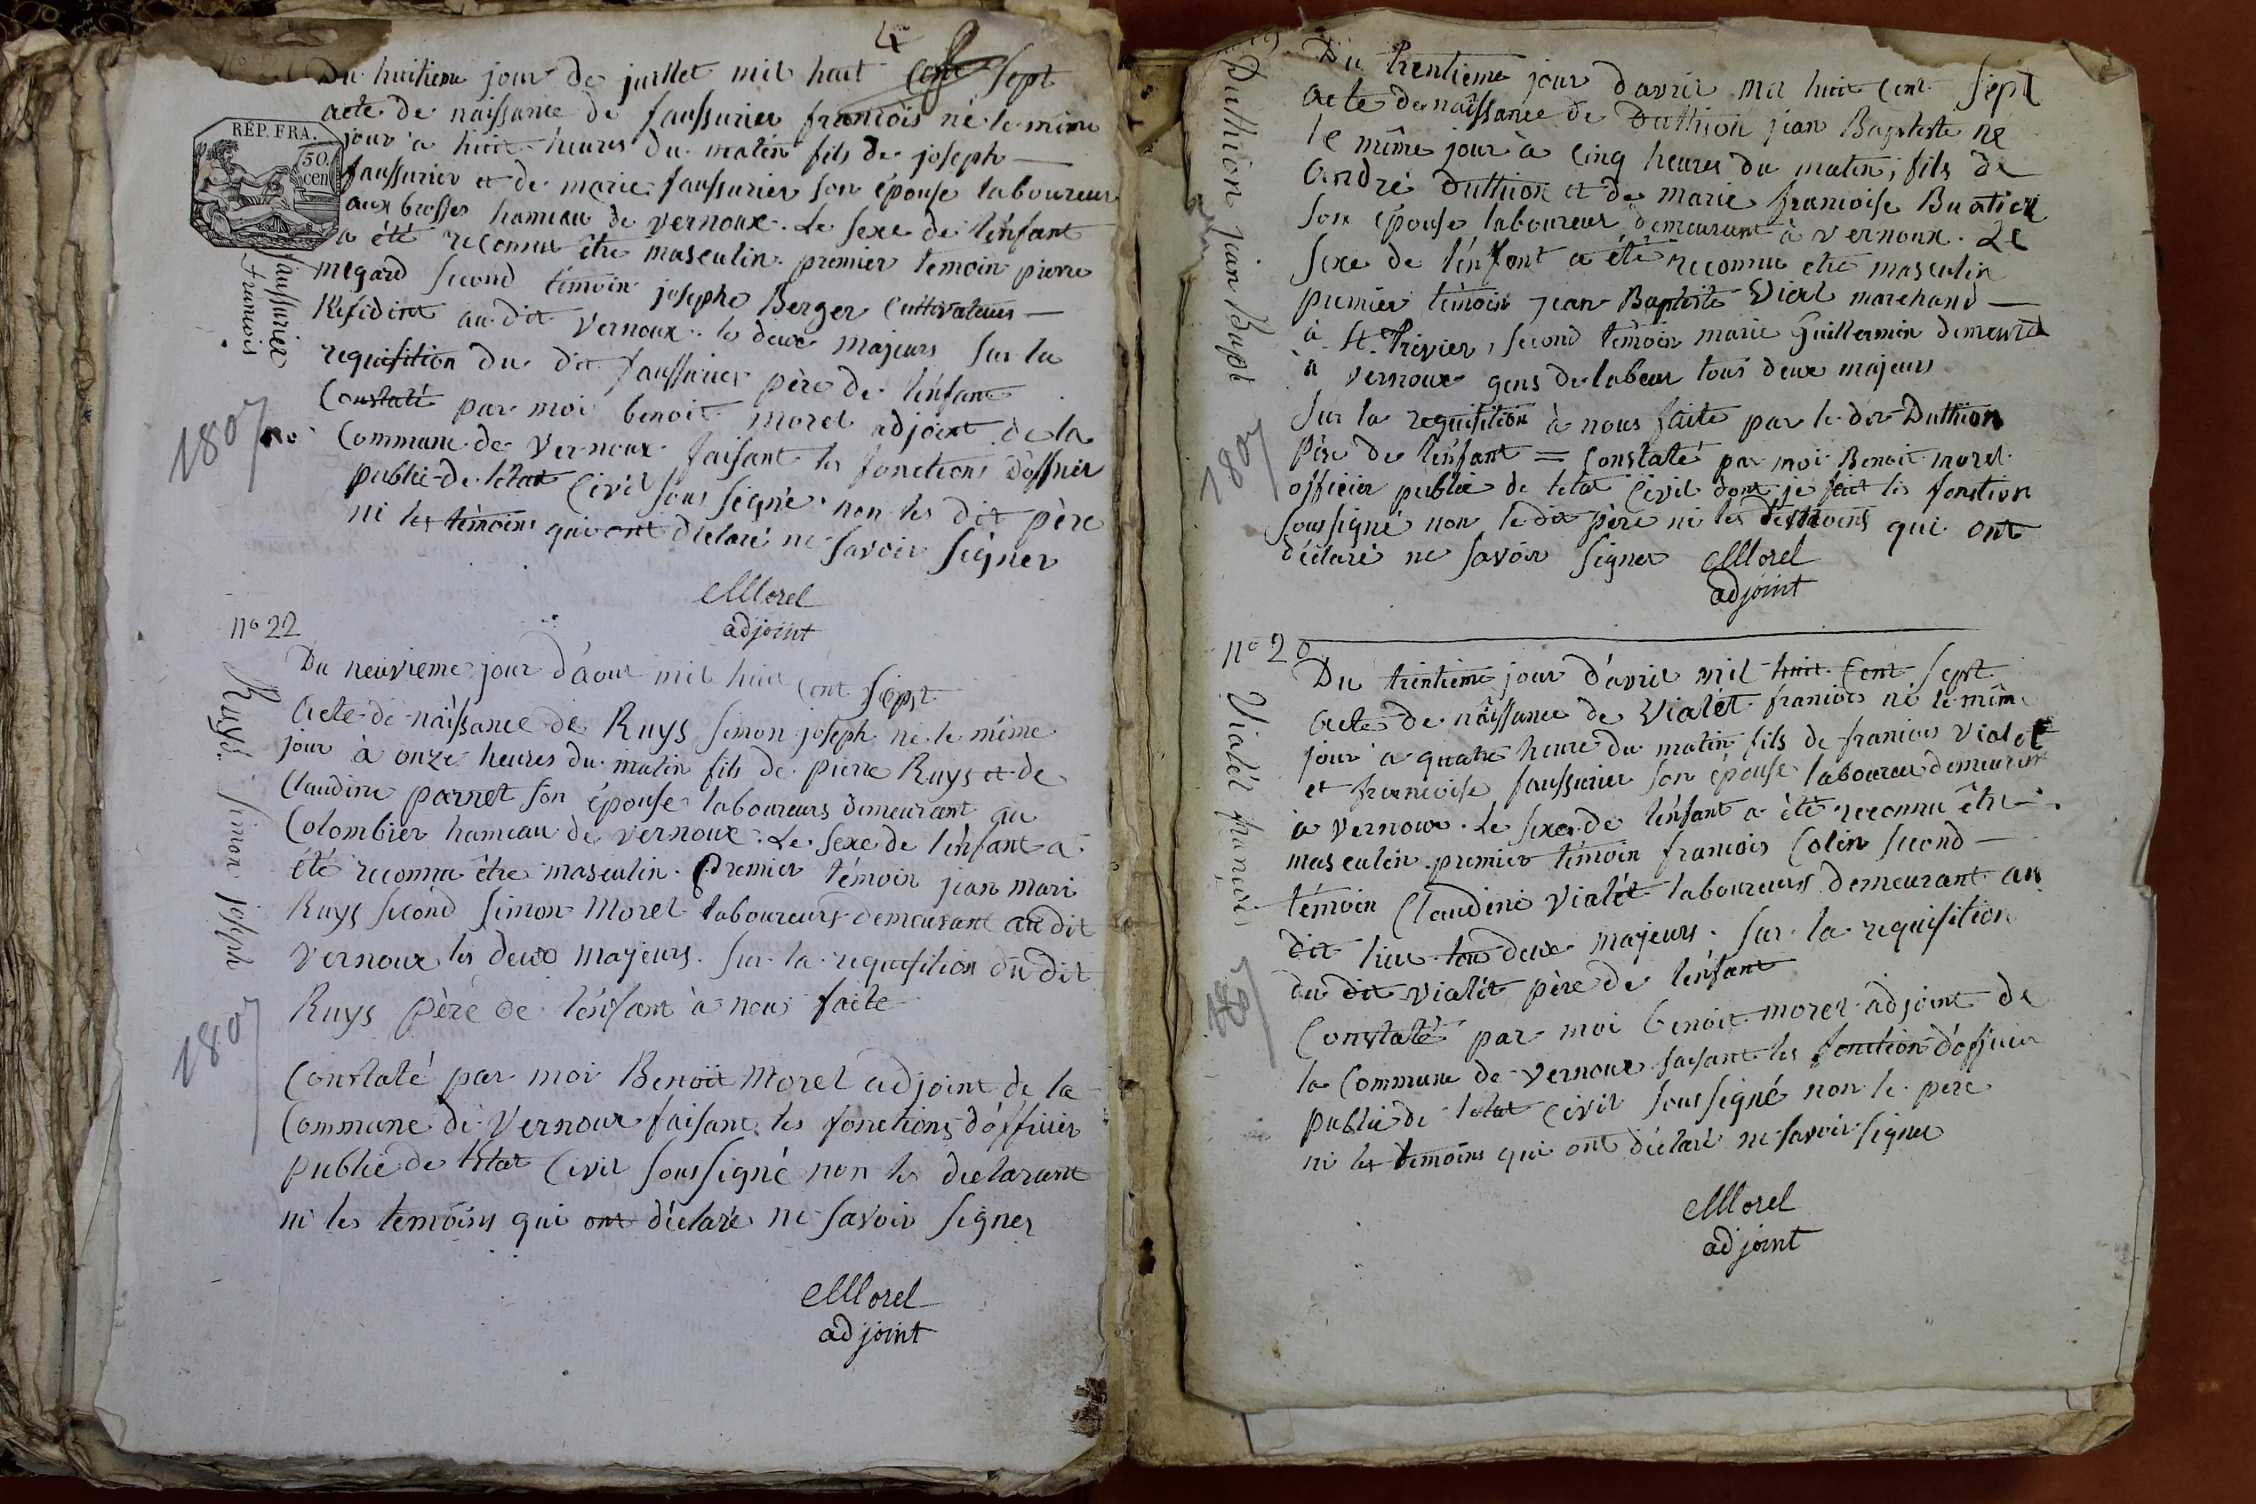 4
Du huitieme jour de juillet mil huit Cent Sept
acte de naissance de faussurier francois né le même
jour à huit heures du matin fils de joseph
faussurier et de marie faussurier son épouse laboureur
aux brosses hameau de vernoux. Le sexe de l'énfant
a été reconnu être masculin. premier temoin pierre
megard second témoin josephe Berger Cultivateurs
Residint au dit vernoux. les deux majeurs sur la
requisition du dit faussurier père de l'énfant
Constaté par moi benoit morel adjoint de la
Commune de Vernoux faisant les fonctions d'officier
public de l'etat Civil sous signé non les dit père
ni les témoins qui ont déclaré ne savoir signer
Morel
adjoint
RÉP. FRA.
50.
cen
faussurier
francois
1807
nº 22
Du neuvieme jour d'aout mil huit Cent Sept
Acte de naissance de Ruys simon joseph né le même
jour à onze heures du matin fils de pierre Ruys et de
Claudine parret son épouse laboureurs demeurant au
Colombier hameau de vernoux. Le sexe de l'énfant a
été reconnu être masculin. Premier témoin jean mari
Ruys second simon Morel laboureurs demeurant au dit
Vernoux les deux majeurs. sur la requisition du dit
Ruys père de l'énfant à nous faite
Constaté par moi Benoit Morel adjoint de la
Commune de Vernoux faisant les fonctions d'officier
public de l'etat Civil soussigné non les declarant
ni les temoins qui ont déclaré ne savoir signer
Morel
adjoint
Ruys simon joseph
1807
Du trentieme jour davril mil huit Cent Sept
acte de naissance de Duthion jean Baptiste né
le même jour à cinq heures du matin, fils de
André duthion et de marie francoise Buatier
son épouse laboureur demeurant à vernoux. Le
sexe de l'énfant a été reconnu etre masculin
premier témoin jean Baptiste Vial marchand
à St. Trivier, second témoin marie Guillermin demeurt
à vernoux gens de labeur tous deux majeurs
sur la requisition à nous faite par le dit Duthion
Père de l'énfant = Constaté par moi Benoit morel
officier public de letat Civil dont je fait les fonction
soussigné non le dit père ni les témoins qui ont
déclaré ne savoir signer Morel
adjoint
Duthion jean Bapt
1807
nº 20
Du trentieme jour d'avril mil huit Cent Sept
Acte de naissance de Vialét francois né le mêm
jour à quatre heure du matin fils de francois Vialet
et francoise faussurier son épouse laboureur demeurant
à vernoux. Le sexe de l'énfant a été reconnu être
masculin. premier témoin francois Colin second
témoin Claudine Vialét laboureurs demeurant au
dit lieu tou deux majeurs. Sur la requisition
du dit vialét père de l'énfant
Constaté par moi benoit morel adjoint de
la Commune de vernoux faisant les fonction d'officier
public de letat civil sous signé non le pere
ni les temoins qui ont déclaré ne savoir signer
Morel
adjoint
Vialét françois
1807